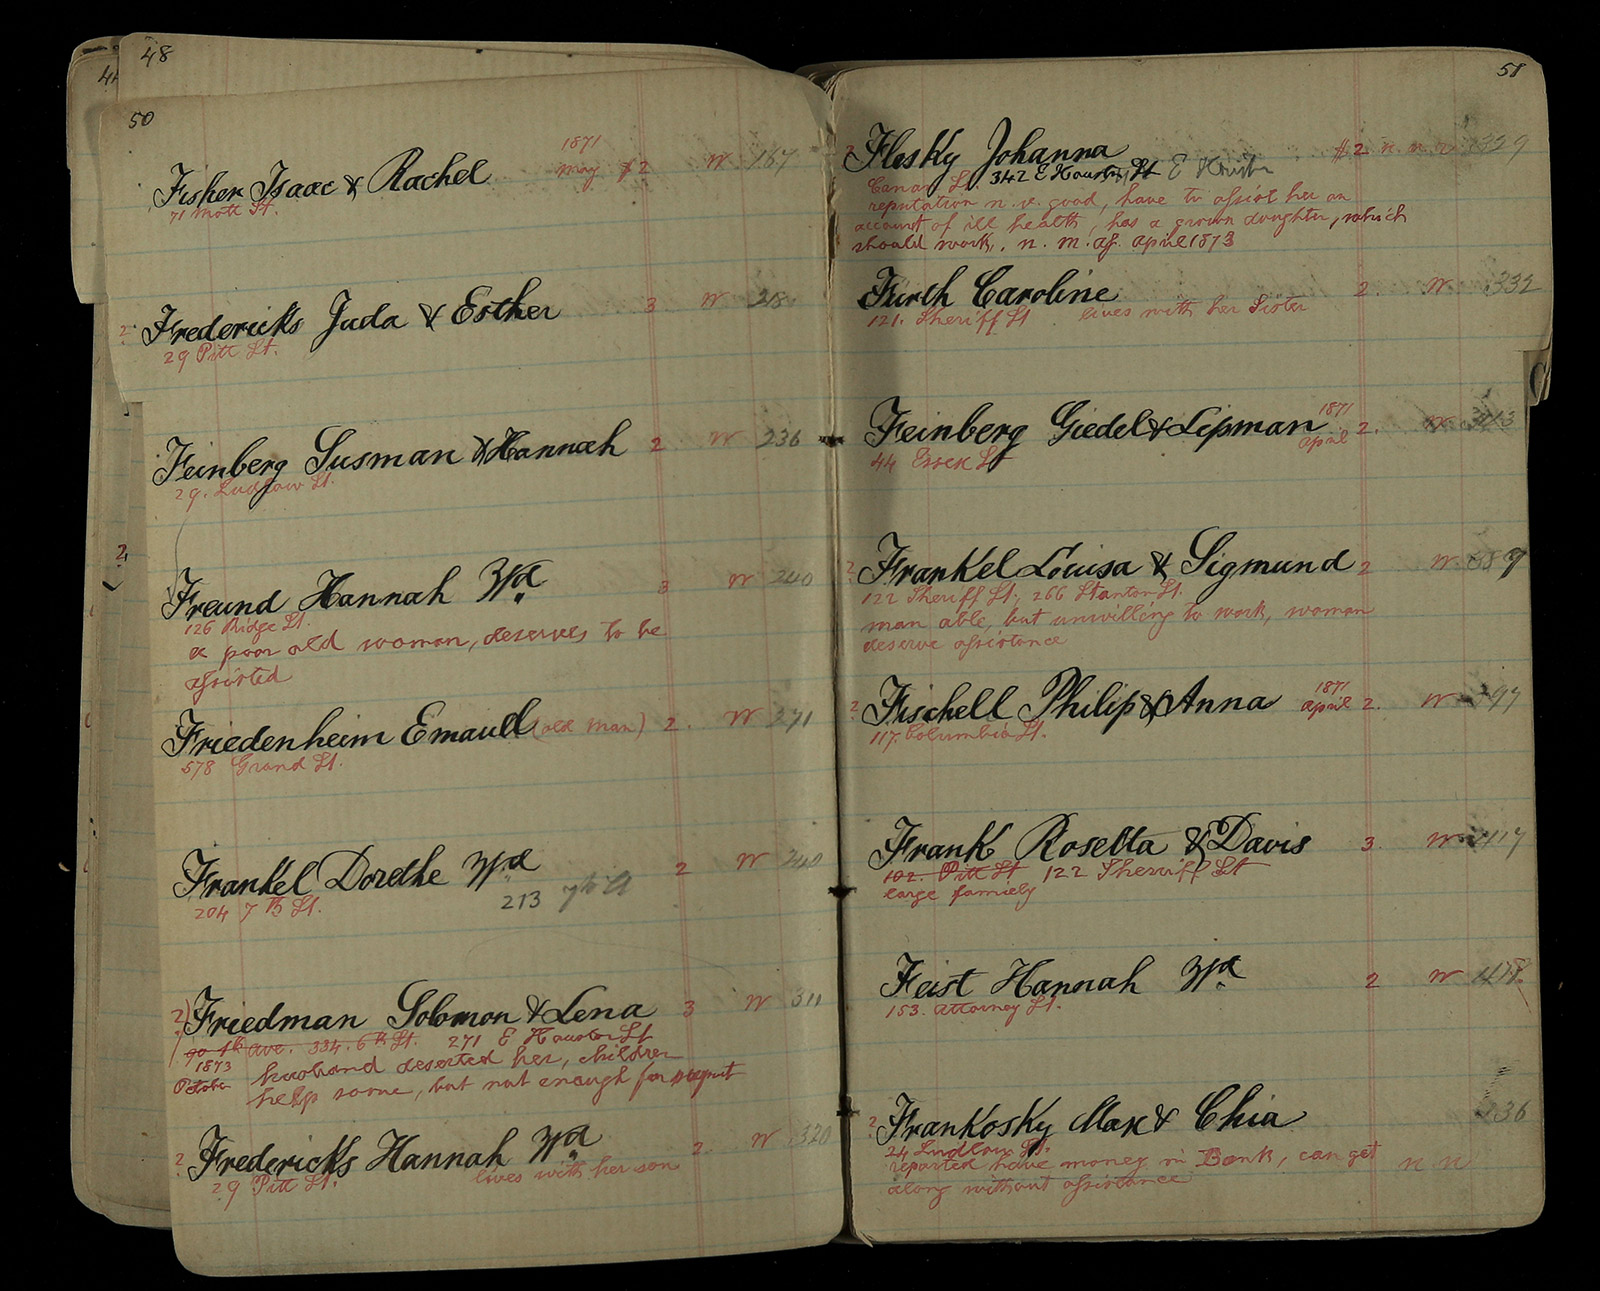 48
50
1871
Fisher Isaac & Rachel may $2 N 167
71 Mott St.
2 Fredericks Juda & Esther 3 N 218
29 Pitt St.
Feinberg Susman & Hannah 2 N 236
29. Ludlow St.
Freund Hannah Wd. 3 N 240
126 Ridge St.
a poor old woman, deserves to be
assisted
Friedenheim Emauel (old man) 2. N 271
578 Grand St.
Frankel Dorethe Wd. 2 N
204 7th St. 213 7th St
2) Friedman Solomon & Lena 3 N 311
90 1th Ave. 334. 6th St. 271 E Houston St
1873 husband deserted her, children
October help some, but not enough for support
2 Fredericks Hannah Wd. 2. N 320
29 Pitt St. lives with her son
2.
51
2 Flesky Johanna $2 n. n. 329
Canon St. 342 E Houston St E
reputation n. v. good, have to assist her on
account of ill health, has a grown daughter, which
should work, n. m. as. April 1873
Fürth Caroline 2. N 332
121. Sheriff St lives with her Sister
1871
Feinberg Giedel & Lipman april 2. N
44 Essex St
2 Frankel Louisa & Sigmund 2 N 389
122 Sheriff St. 266 Stanton St.
man able, but unwilling to work, woman
deserve assistance
1871
2 Fischell Philip & Anna april 2. N 397
117. Columbia St.
Frank Rosetta & Davis 3. N 417
102. Pitt St 122 Sheriff St
large family
Feist Hannah Wd. 2 N 478
153. Attorney St.
2 Frankosky Max & Chia 36
24 Ludlow St.
reported have money in Bank, can get n n
along without assistance